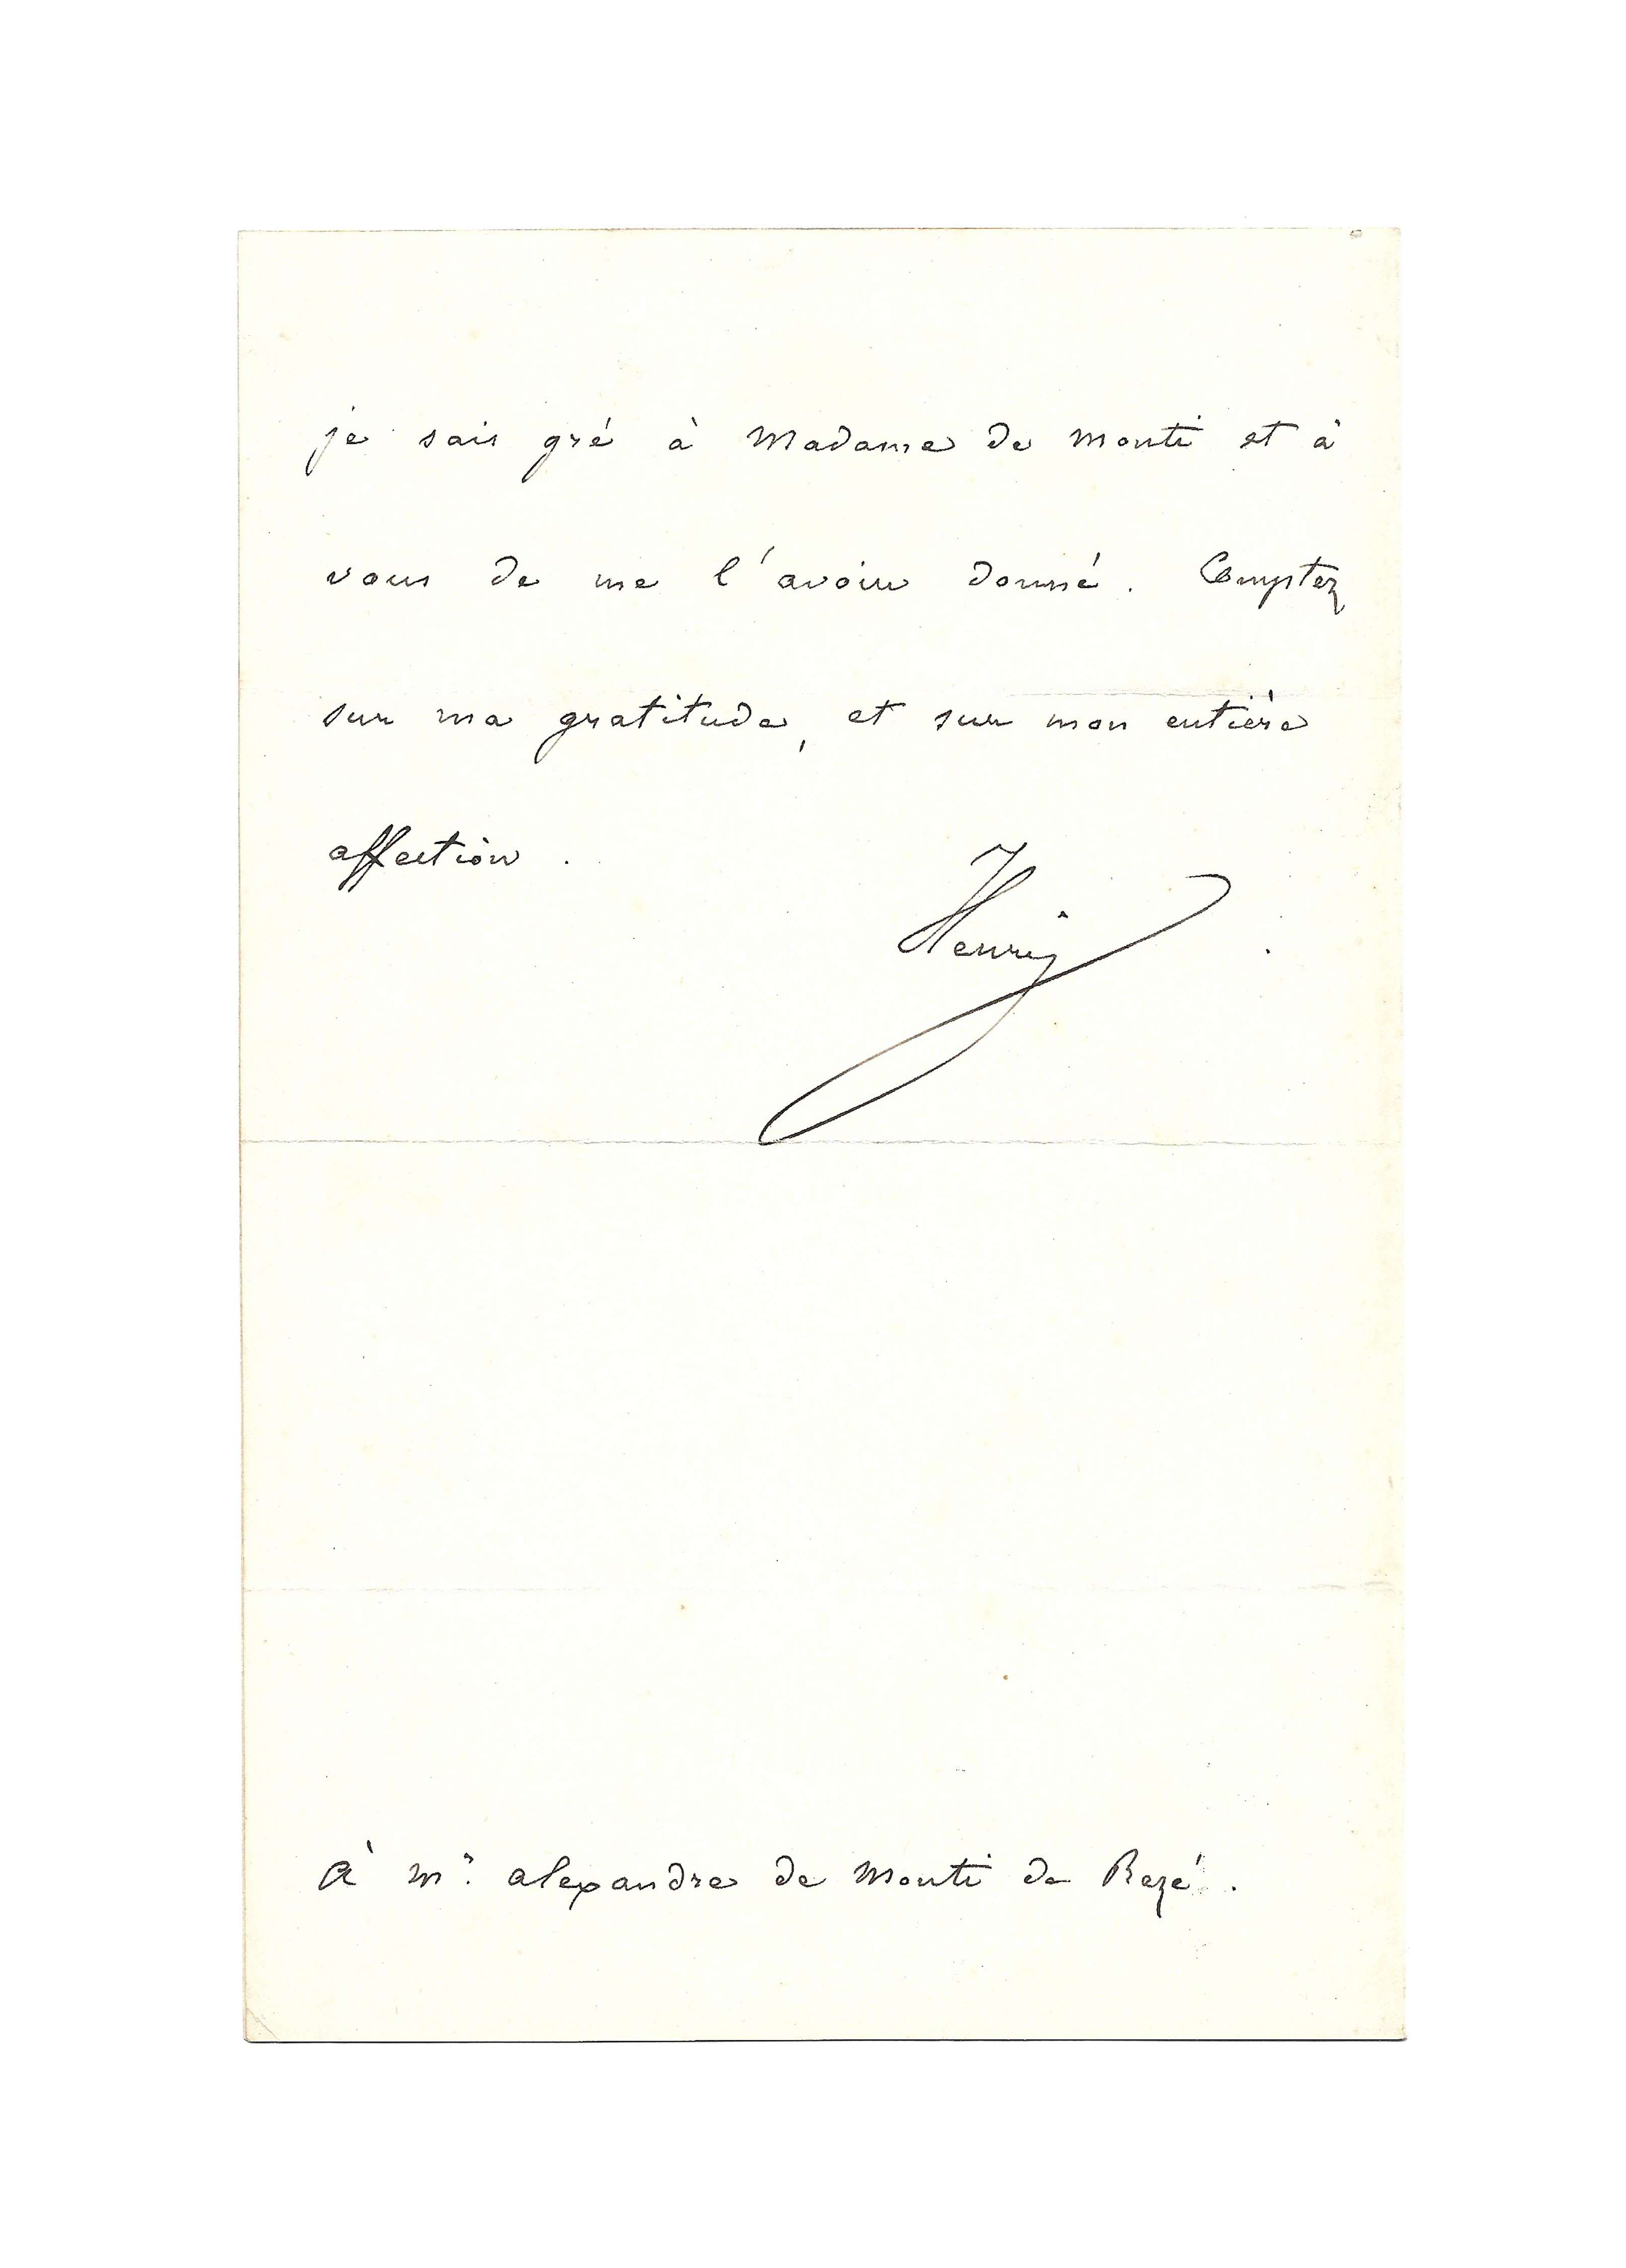 je sais gré à Madame de Monti et à
vous de me l'avoir donné. Comptez
sur ma gratitude, et sur mon entière
affection.
Henry
À Mr. alexandre de Monti de Rezé.